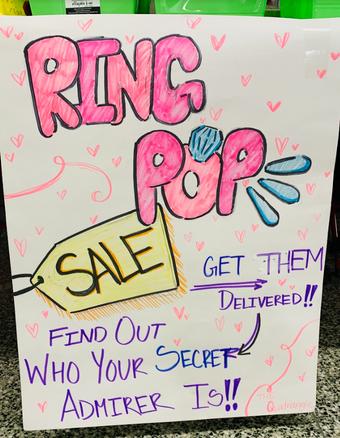 RING
POP
SALE
GET THEM
DELIVERED!!
FIND OUT
WHO YOUR SECRET
ADMIRER IS!!